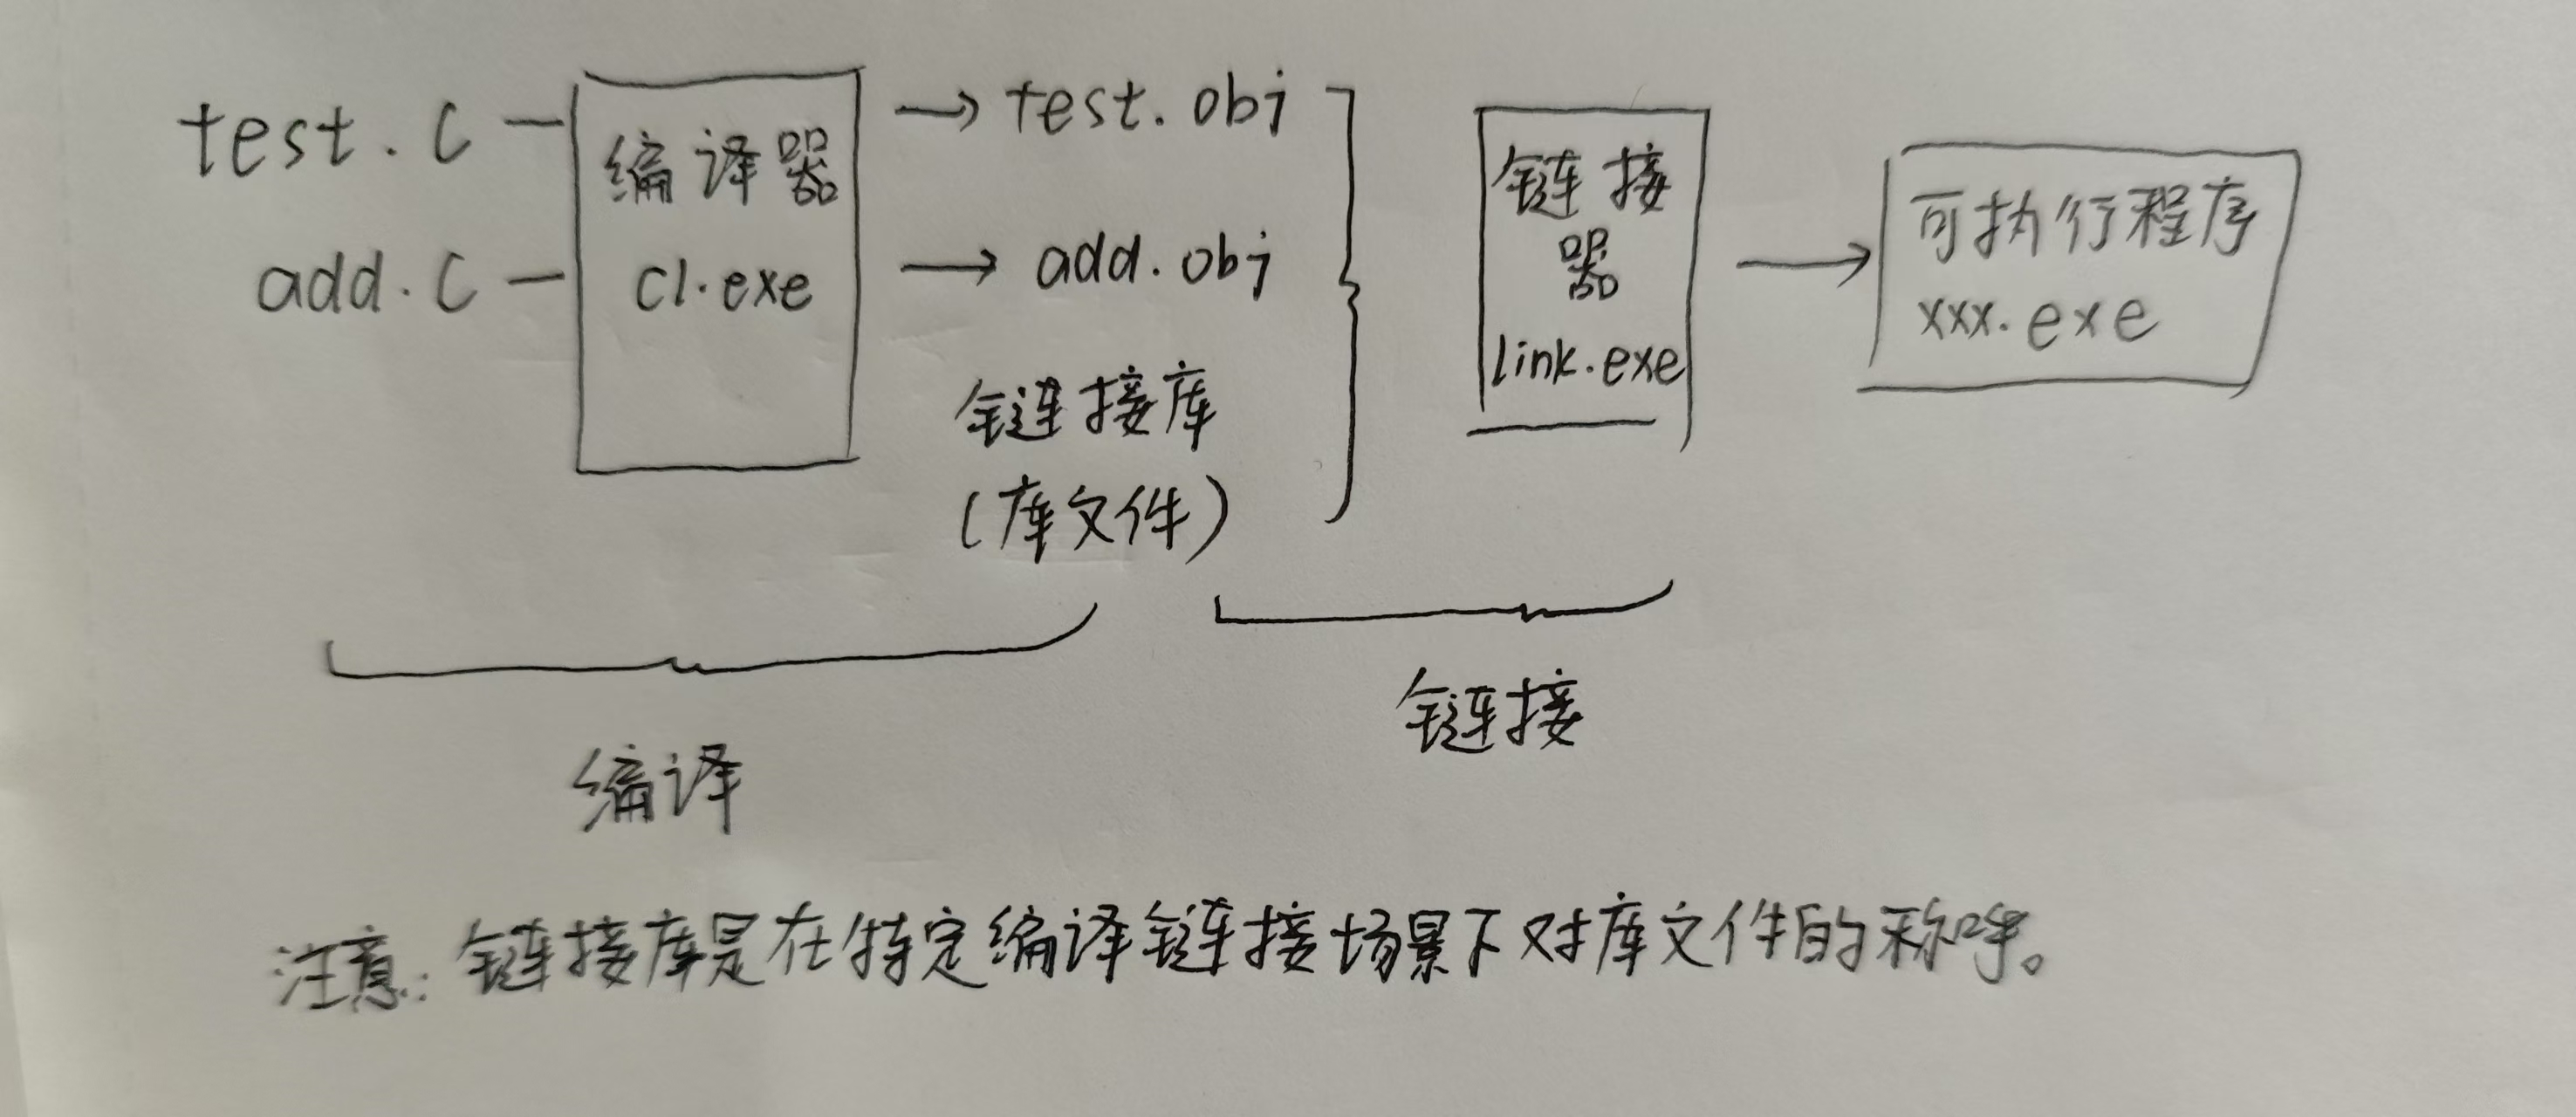 test.c
add.c
编译器
cl.exe
test.obj
add.obj
链接库
(库文件)
链接
器
link.exe
可执行程序
xxx.exe
编译
链接
注意:链接库是在特定编译链接场景下对库文件的称呼。